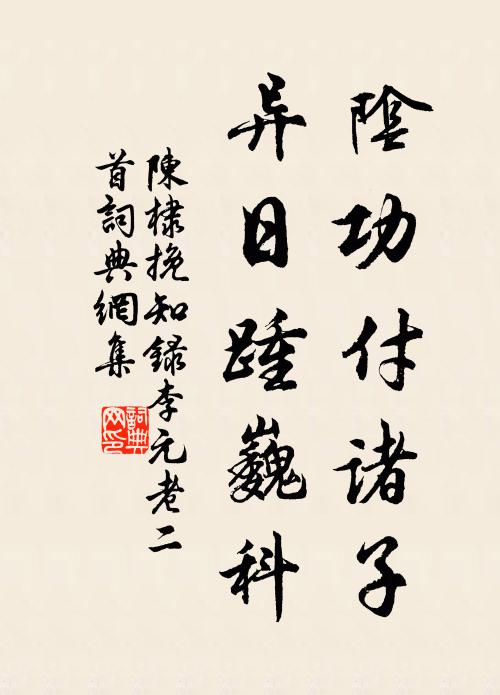 陰功付诸子
异日踵巍科
陳棣挽知録李元老二
首詞典網集
詞典网印